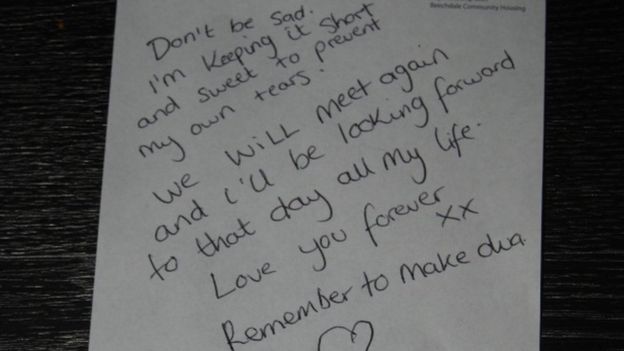 Beechdale Community Housing
Don't be sad.
I'm keeping it short
and sweet to prevent
my own tears.
We WiLL meet again
and i'll be looking forward
to that day all my life.
Love you forever
xx
Remember to make dua